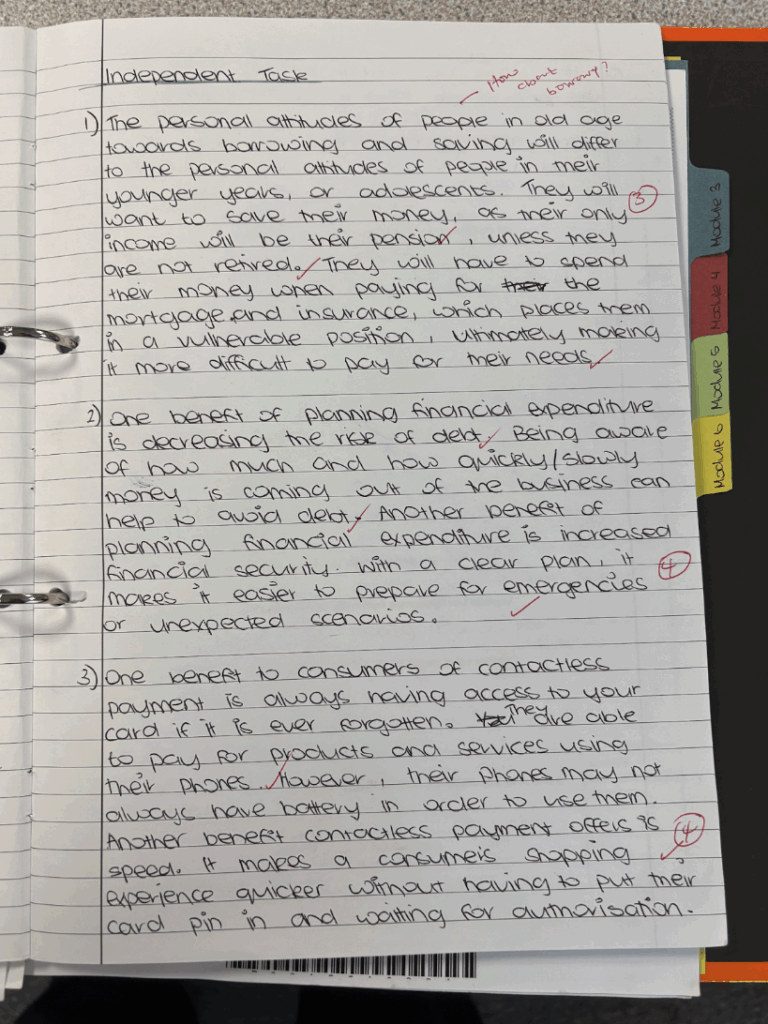 Independent Task
How
about
borrowing?
1) The personal attitudes of people in old age
towards borrowing and saving will differ
to the personal attitudes of people in their
younger years, or adolescents. They will
3
want to save their money, as their only
income will be their pension, unless they
are not retired. They will have to spend
their money when paying for their the
mortgage and insurance, which places them
in a vulnerable position, ultimately making
it more difficult to pay for their needs
2) One benefit of planning financial expenditure
is decreasing the rise of debt. Being aware
of how much and how quickly/slowly
money is coming out of the business can
help to avoid debt. Another benefit of
planning financial expenditure is increased
financial security. With a clear plan, it
4
makes it easier to prepare for emergencies
or unexpected scenarios.
3) One benefit to consumers of contactless
payment is always having access to your
card if it is ever forgotten. They are able
to pay for products and services using
their phones. However, their phones may not
always have battery in order to use them.
Another benefit contactless payment offers is
4
speed. It makes a consumer's shopping
experience quicker without having to put their
card pin in and waiting for authorisation.
Module 3
Module 4
Module 5
Module 6